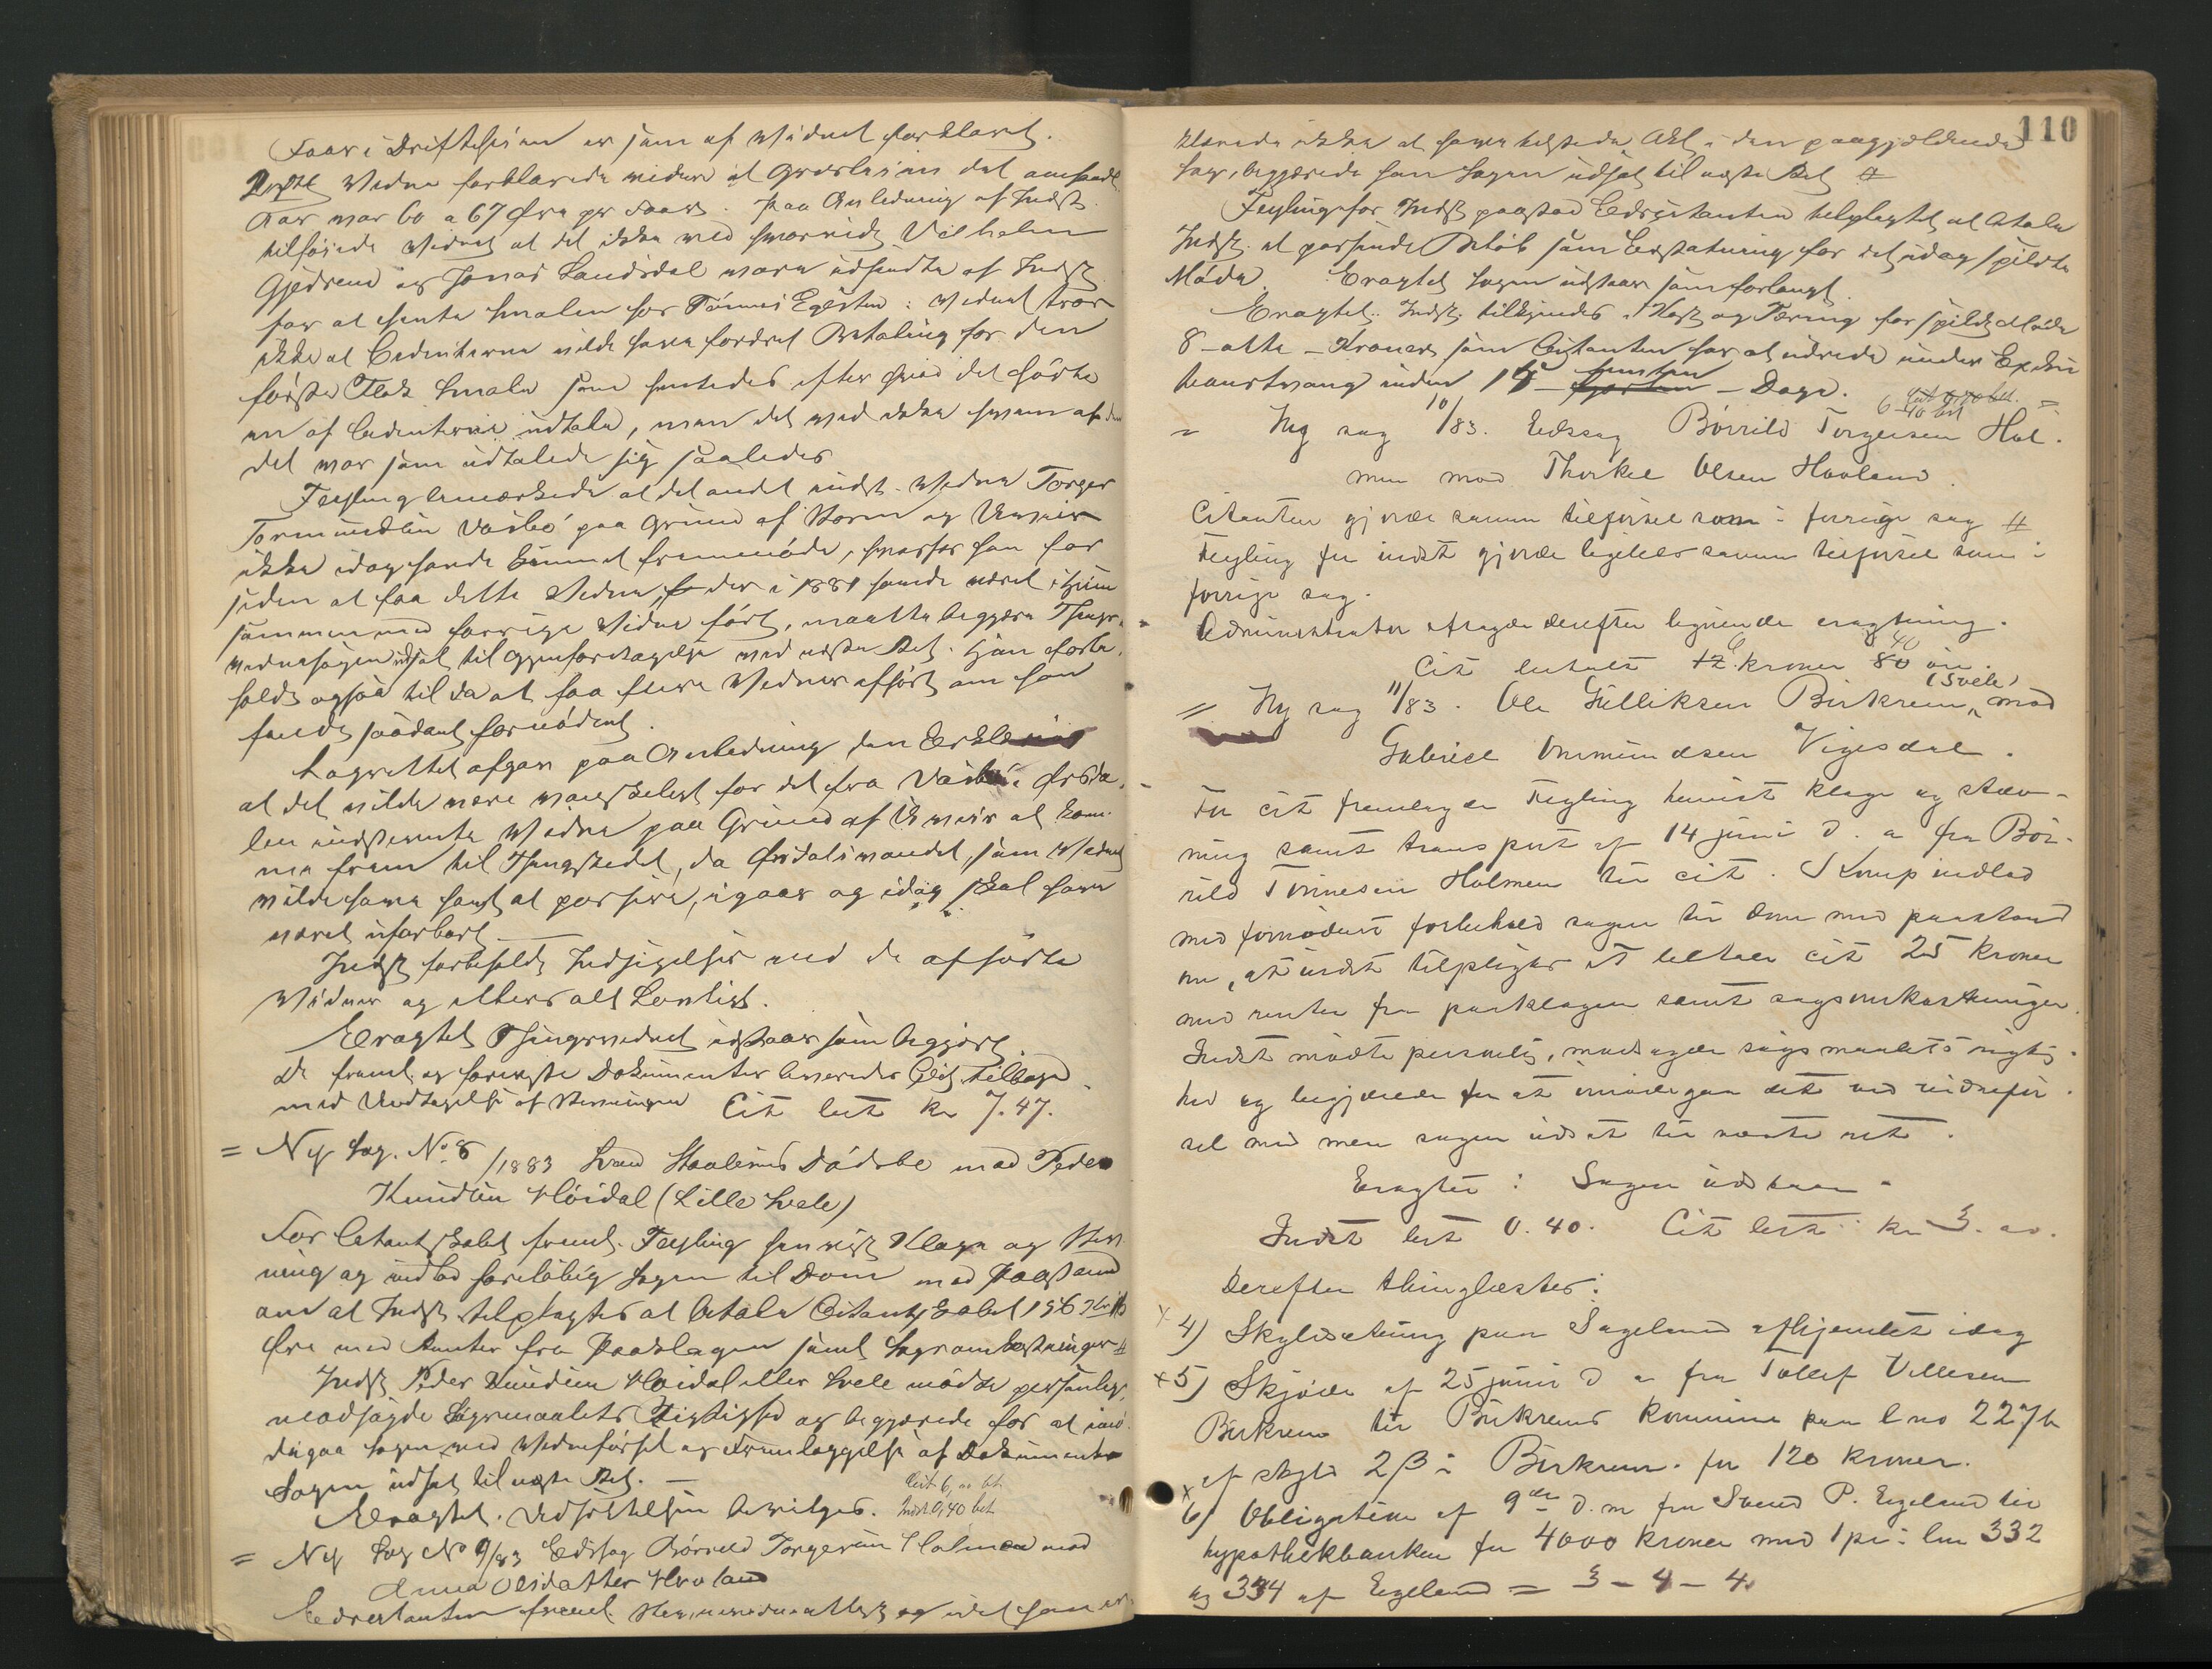 Faar i Driftsheien er som af Vidnet forklaret.
Vidne forklarede videre at Græsleien det omspurgte
Aar var 60 a 67 Øre pr Faar. Paa Anledning af Indst.
tilføiede Vidnet at det ikke ved hvorvidt Vilhelm
Gjedrem og Jonas Landsdal vare udsendte af Indst.
for at hente Smalen hos Tønnes Egesten. Vidnet tror
ikke at Citanterne vilde have fordret Betaling for den
første Flok Smale som hentedes efter hvad det hørte
en af Citanterne udtale, men det ved ikke hvem af dem
det var som udtalede sig saaledes
Feyling bemærkede at det andet indst. Vidne Torger
Tormundsen Vasbø paa Grund af Storm og Uveir
ikke idag havde kunnet fremmøde, hvorfor han for
siden at faa dette Vidne, der i 1881 havde været i Heien
sammen med forrige Vidne ført, maatte begjære Things-
vidnesagen udsat til Gjenforetagelse ved næste Ret. Han forbe-
holdt ogsaa til da at faa flere Vidner afhørt om han
fandt saadant fornødent.
Lagrettet afgav paa Anledning den Erklæring
at det vilde være vanskeligt for det fra Vasbø i Ørsda-
len indstevnte Vidne paa Grund af Uveir at kom-
me frem til Thingstedet, da Ørsdalsvandet, som Vidnet
vilde have havt at passere, igaar og idag skal have
været ufarbart.
Indst. forbeholdt Indsigelser ved de afhørte
Vidner og ellers alt Lovligt.
Eragtet Thingsvidnet udstaar som begjært.
De freml. og foreviste Dokumenter leveredes Cit. tilbage
med Undtagelse af Stevningen Cit bet kr 7.47.
= Ny Sag. No 8/1883 Svend Staalesens Dødsbo mod Peder
Knudsen Høidal (Lille Svele)
For Citantskabet freml. Feyling henvist Klage og Stev-
ning og indlod foreløbig Sagen til Dom med Paastand
om at Indst. tilpligtes at betale Citantskabet 196 Kr
Øre med Renter fra Paaklagen samt Sagsomkostninger #
Indst. Peder Knudsen Høidal eller Svele mødte personlig,
modsagde Sagsmaalets Rigtighed og begjærede for at imø-
degaa Sagen med Vidneførsel og Fremlæggelse af Dokumenter
Sagen udsat til næste Ret. —
Cit 6, bt
Eragtet. Udsættelsen bevilges. Indst 0,40 bet
= Ny Sag No 9/83 Edssag Børrild Torgersen Holmen mod
Anna Olsdatter Hovland
110
sag, begjærede han Sagen udsat til næste Ret #
Feyling for Indst. paastod Edscitanten tilpligtet at betale
Indst. et passende Beløb som Erstatning for det idag spildte
Møde. Eragtet Sagen udstaar som forlangt.
Eragtet: Indst. tilkjendes i Kost og Tæring for spildt Møde
8 - otte - Kroner som Citanten har at udrede under Exeku
tionstvang inden 15 - femten - Dage.
= Ny sag 10/83. Edssag Børrild Torgersen Hol-
men mod Thorkel Olsen Hovland.
Citanten gjorde samme tilførsel som i forrige sag #
Feyling for indst gjorde ligeledes samme tilførsel som i
forrige sag.
Administrator afsagde derefter lignende eragtning.
Cit betalt 6 kroner 40 øre.
= Ny sag 11/83. Ole Gulliksen Birkrem (Svele) mod
Gabriel Ommundsen Vigesdal.
For cit fremlagde Feyling henvist klage og stæv-
ning samt transport af 14 juni d. a fra Bør-
rild Tønnesen Holmen til cit. Komp indlod
med fornødent forbehold sagen til dom med paastand
om, at indst tilpligtes at betale cit 25 kroner
med renter fra paaklagen samt sagsomkostninger.
Indst mødte personlig, modsagde sagsmaalets rigtig-
hed og begjærede for at imødegaa det ved vidnefør-
sel med mere sagen udsat til næste ret.
Eragtet: Sagen udstaar.
Indst bet 0.40. Cit bet kr 3.
Derefter thinglæstes:
x 4) Skyldsætning paa Sageland afhjemlet idag
x 5) Skjøde af 25 juni d a fra Tollef Villesen
Birkrem til Birkrems kommune paa l no 227b
af skyld 2 β i Birkrem for 120 kroner.
x 6) Obligation af 9de d. m fra Svend P. Eegeland til
hypothekbanken for 4000 kroner med 1 pr i lno 332
og 334 af Eegeland = 3 - 4 - 4.